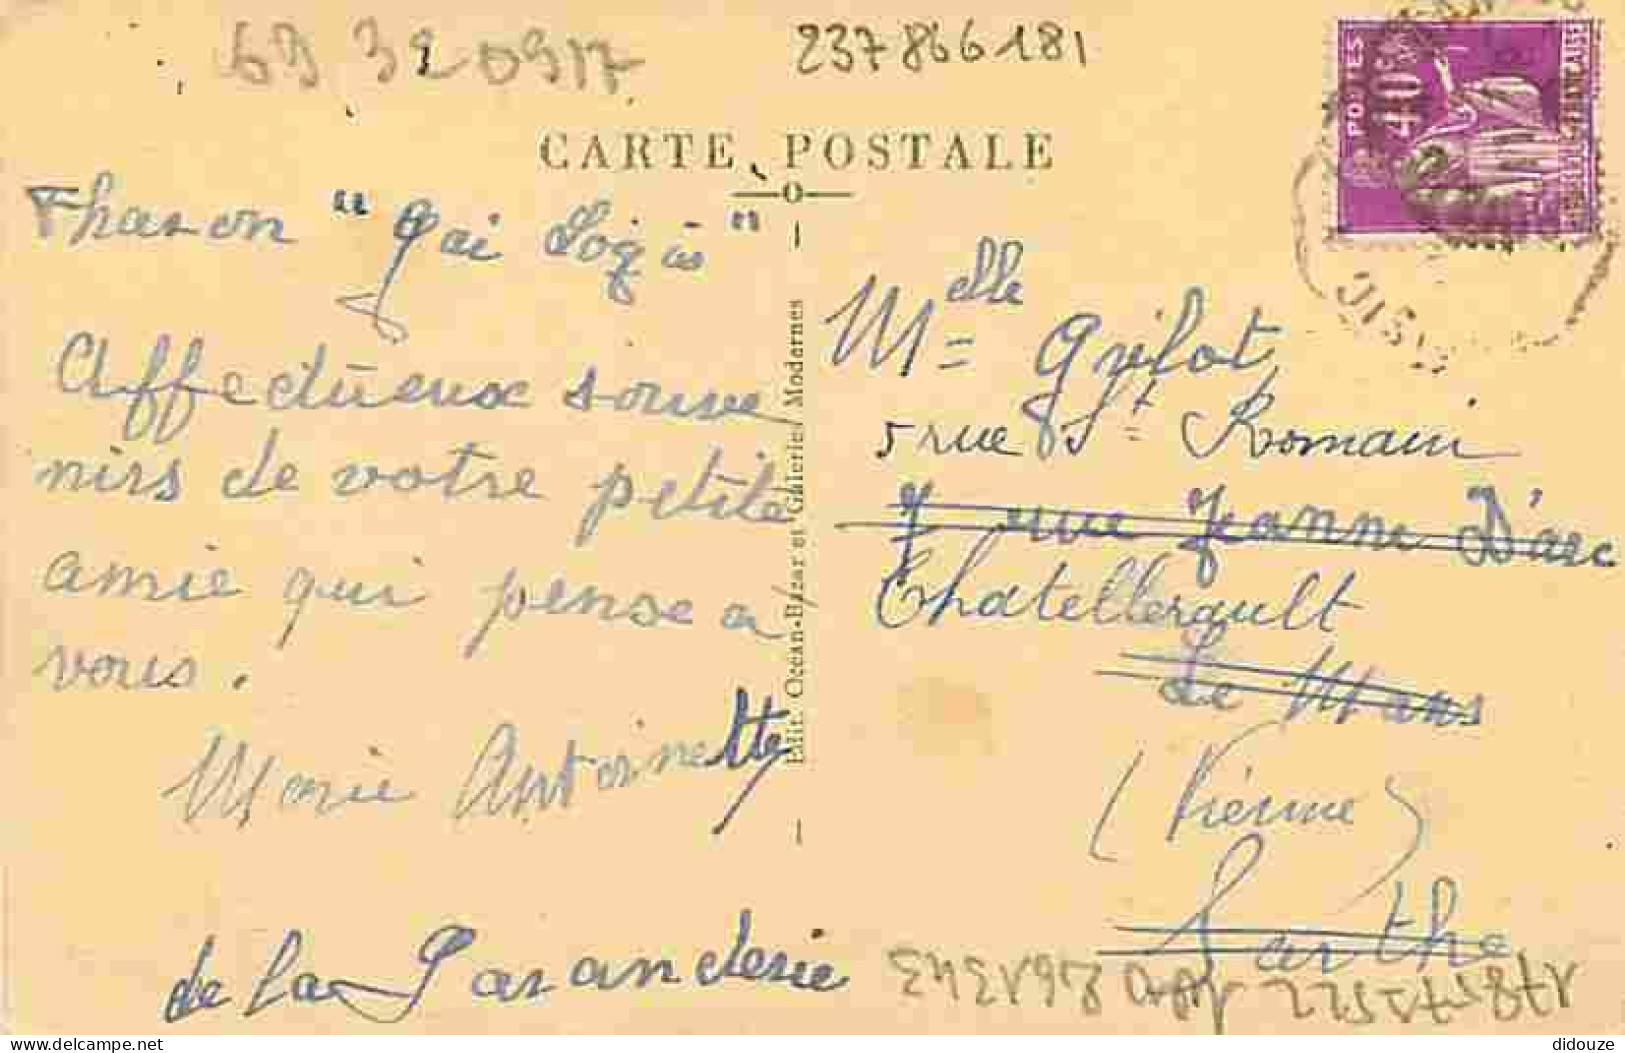 69 320917
237866181
CARTE POSTALE
POSTES
40c
Tharon "Gai Logis"
Affectueux souve
nirs de votre petite
amie qui pense a
vous.
Marie Antoinette
de la Paranderie
Edit. Océan-Bazar et Galeries Modernes
Melle Gilot
5 rue St Romain
7 rue Jeanne D'arc
Chatellerault
Le Mans
(Vienne)
Sarthe
didouze
delcampe.net